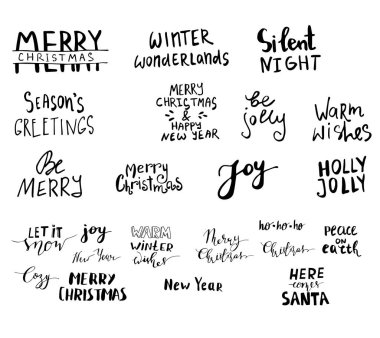 MERRY
CHRISTMAS
MERRY
WINTER
wonderlands
Silent
NIGHT
SEASON'S
GREETINGS
MERRY
CHRISTMAS
&
HAPPY
NEW YEAR
be
jolly
Warm
wishes
Be
MERRY
Merry
Christmas
Joy
HOLLY
JOLLY
LET IT
snow
joy
New Year
WARM
WINTER
wishes
Merry
Christmas
ho-ho-ho
Christmas
PEACE
ON
earth
Cozy
MERRY
CHRISTMAS
New Year
HERE
comes
SANTA